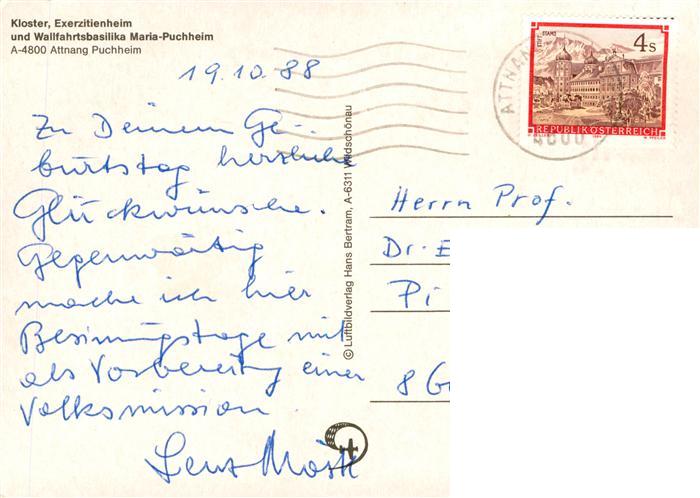 Kloster, Exerzitienheim
und Wallfahrtsbasilika Maria-Puchheim
A-4800 Attnang Puchheim
19.10.88
Zu Deinem Ge-
burtstag herzliche
Glückwünsche.
Gegenwärtig
mache ich hier
Besinnungstage mit
als Vorbereitung einer
Volksmission
© Luftbildverlag Hans Bertram, A-6311 Wildschönau
STIFT STAMS
4 S
REPUBLIK ÖSTERREICH
ATTNAN
4800
Herrn Prof.
Dr. E
Pi
8 G